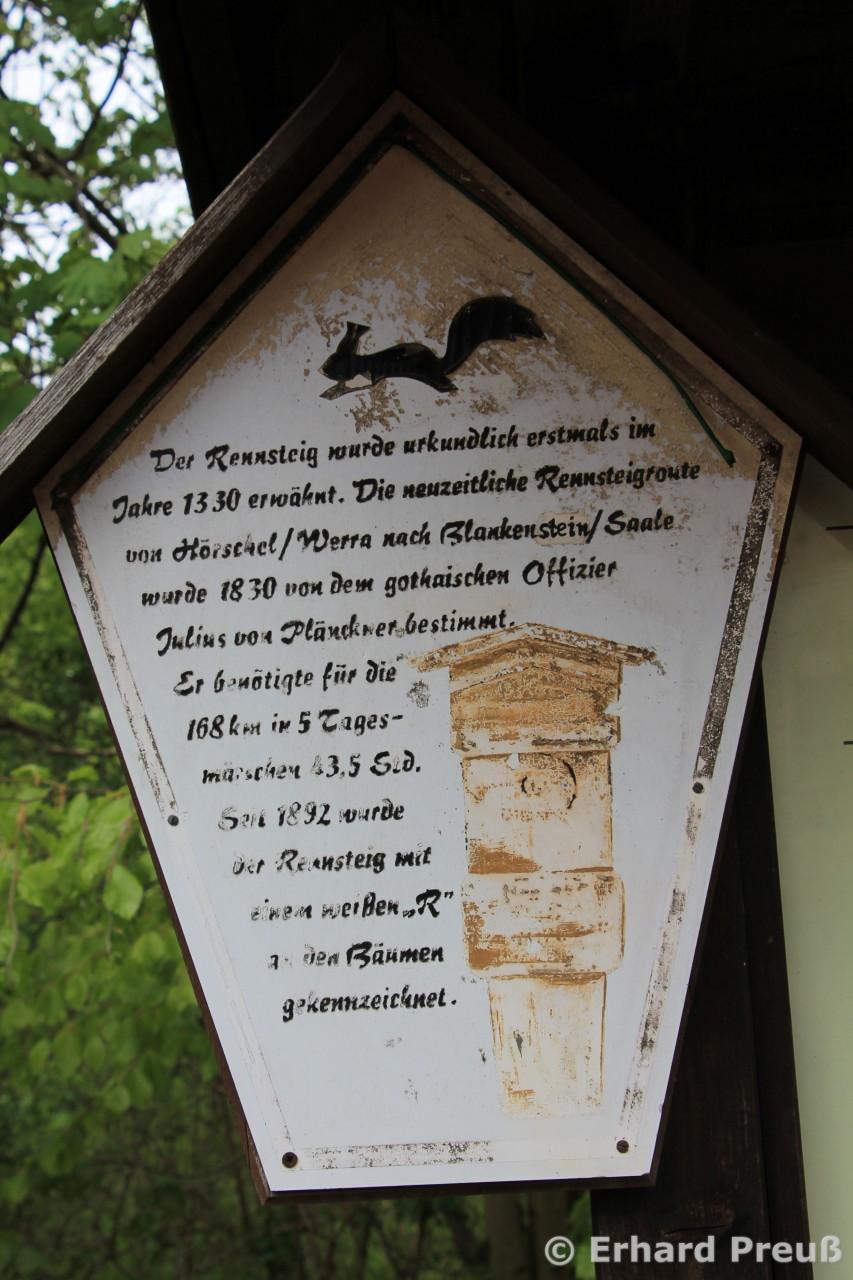 Der Rennsteig wurde urkundlich erstmals im
Jahre 1330 erwähnt. Die neuzeitliche Rennsteigroute
von Hörschel/Werra nach Blankenstein/Saale
wurde 1830 von dem gothaischen Offizier
Julius von Plänckner bestimmt.
Er benötigte für die
168km in 5 Tages-
märschen 43,5 Std.
Seit 1892 wurde
der Rennsteig mit
einem weißen „R"
an den Bäumen
gekennzeichnet.
© Erhard Preuß